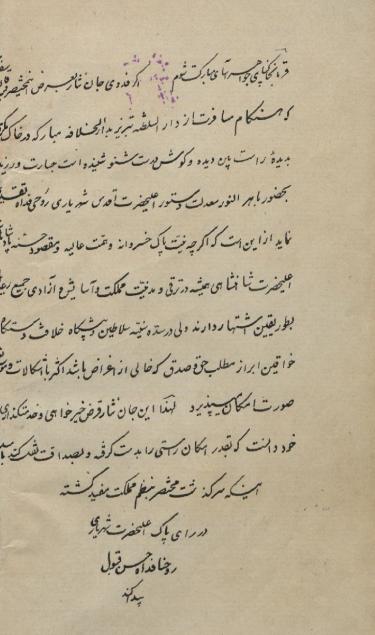 قربان خاکپای جواهرآسای مبارکت شوم اگر فدوی جان نثار بعرض
که هنگام مسافرت از دار السلطنه تبریز بدار الخلافه مبارکه در خاک
بدیدهٔ راست بین دیده و گوش درست شنو شنیده است جسارت ورزید
بحضور باهر النور معدلت دستور اعلیحضرت اقدس شهریاری روحی فداه تقدیم
نماید از این است که اگر چه نیت پاک خسروانه و همت عالیه و مقصود حسنه
اعلیحضرت شاهنشاهی همیشه در ترقی و مدنیت مملکت و آسایش و آزادی جمیع
بطوریقین اشتهار دارند ولی در سده سنیه سلاطین و پیشگاه خلافت دستگاه
خواقین ابراز مطلب حق و صدق که خالی از اغراض باشد اگر با اشکالات
صورت امکان میپذیرد لهذا این جان نثار فرض خیر خواهی و خدمتگذاری
خود دانست که بقدر امکان راستی را بدست گرفته و بصداقت
اینکه سرگذشت مختصر بنظم مملکت مفید گشته
در رای پاک اعلیحضرت شهریاری
روحنا فداه حسن قبول
پیدا کند